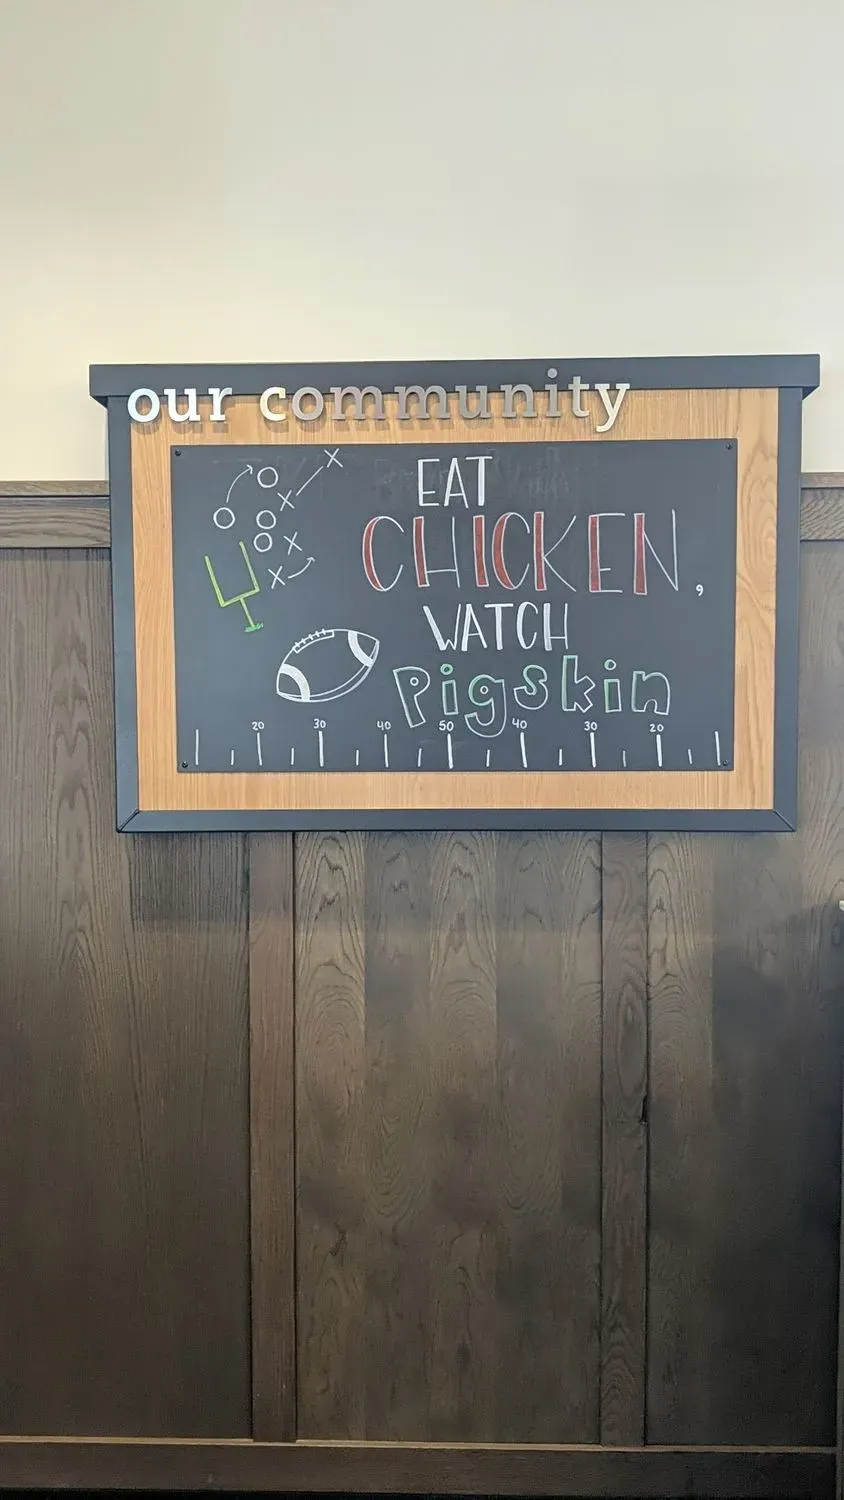 our community
EAT
CHICKEN,
WATCH
Pigskin
20 30 40 50 40 30 20